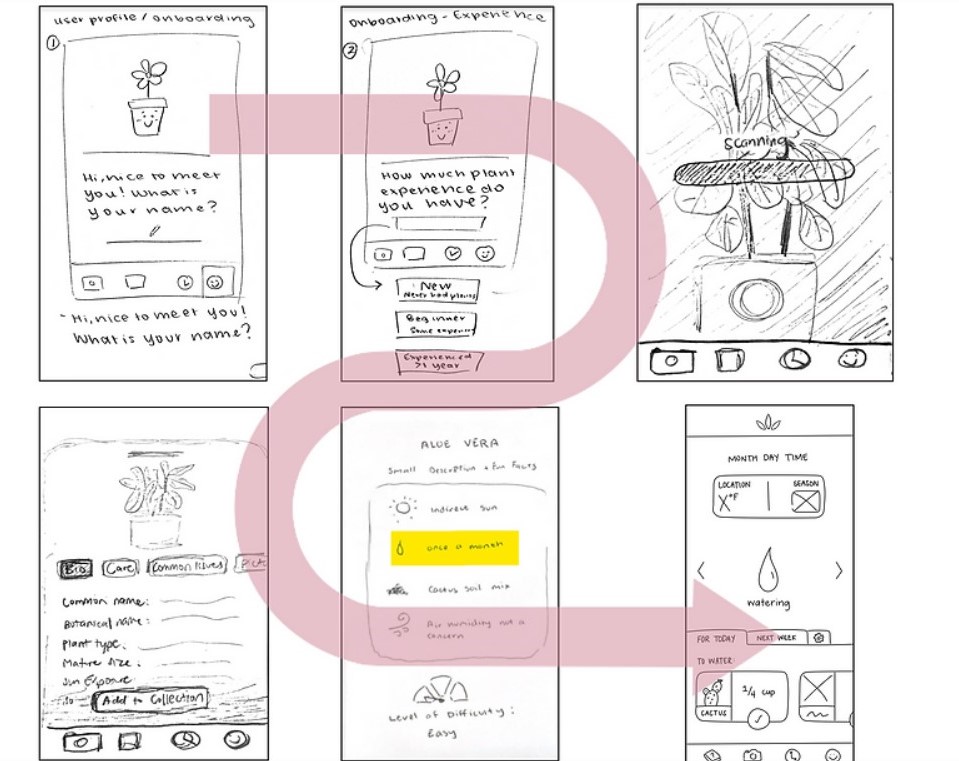 user profile / onboarding
1
Hi, nice to meet
you! What is
your name?
- Hi, nice to meet you!
What is your name?
onboarding - Experience
2
How much plant
experience do
you have?
New
Never had plants
Beginner
Some experience
Experienced
>1 year
Scanning
Bio
Care
Common Issues
Common name:
Botanical name:
Plant type:
Mature size:
Sun Exposure
Add to Collection
ALOE VERA
Small Description + Fun Facts
Indirect sun
once a month
Cactus soil mix
Air humidity not a
concern
Level of Difficulty:
Easy
MONTH DAY TIME
LOCATION
X°F
SEASON
watering
FOR TODAY
NEXT WEEK
TO WATER:
CACTUS
1/4 cup